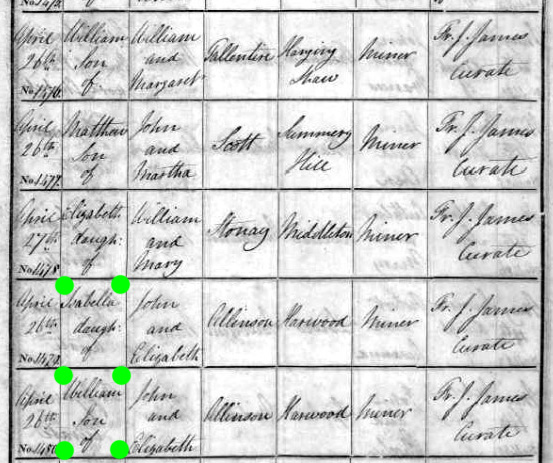 April William William
26th Son and Fallentire Hanging Miner Fr. J. James
of Margaret Shaw Curate
No. 1476.
April Matthew John
26th Son and Scott Summery Miner Fr. J. James
of Martha Hill Curate
No. 1477.
April Elizabeth William
27th daugh: and Stonag Middleton Miner Fr. J. James
of Mary Curate
No. 1478.
April Isabella John
26th daugh: and Allinson Harwood Miner Fr. J. James
of Elizabeth Curate
No. 1479.
April William John
26th Son and Allinson Harwood Miner Fr. J. James
of Elizabeth Curate
No. 1480